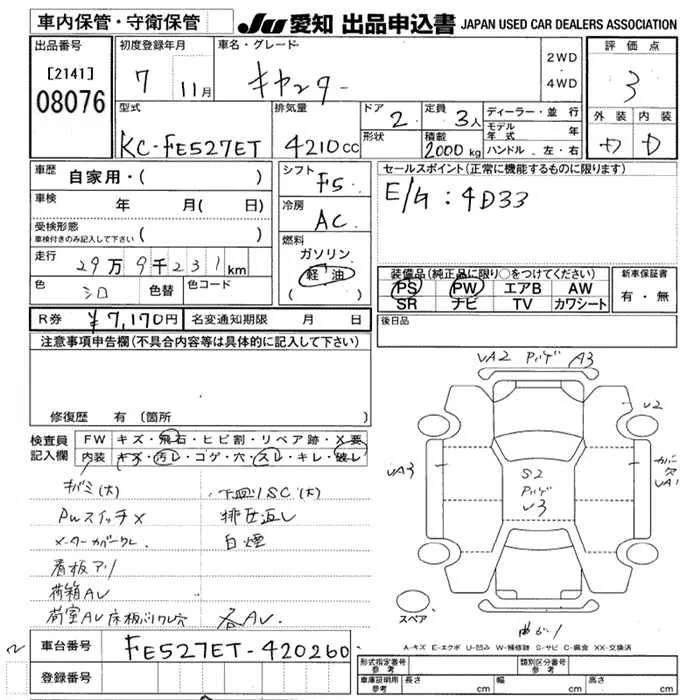 車内保管・守衛保管
JU 愛知 出品申込書 JAPAN USED CAR DEALERS ASSOCIATION
出品番号
[2141]
08076
初度登録年月
7 11月
車名・グレード
キャンター
2WD
・
4WD
評価点
3
外装 内装
D D
型式
KC-FE527ET
排気量
4210cc
ドア 2
形状
定員 3人
積載
2000kg
ディーラー・並行
モデル年式 年
ハンドル 左・右
車歴
自家用・( )
車検 年 月( 日)
受検形態
車検付きのみ記入して下さい ( )
走行
29万9千231km
色 シロ 色替 色コード
シフト
F5
冷房
AC
燃料
ガソリン
軽油
( )
セールスポイント(正常に機能するものに限ります)
E/G:4D33
装備品(純正品に限り○をつけてください)
PS PW エアB AW
SR ナビ TV カワシート
新車保証書
有・無
R券 ¥7,170円 名変通知期限 月 日
後日品
注意事項申告欄(不具合内容等は具体的に記入して下さい)
修復歴 有 〔箇所 〕
検査員
記入欄
FW キズ・飛石・ヒビ割・リペア跡・X要
内装 キズ・汚レ・コゲ・穴・スレ・キレ・破レ
キバミ(大) 下回りSC(大)
PWスイッチX 排気返し
メーターカバークレ. 白煙
看板アリ
荷箱AU
荷室AU 床板バリワレ穴 各AU.
UA2 A3
U2
UA3
S2
U3
カバー穴
UA1
スペア
曲がり
A-キズ E-エクボ U-凹み W-補修跡 S-サビ C-腐食 XX-交換済
車台番号 FE527ET-420260
登録番号
形式指定番号
参考
類別区分番号
車庫証明用
参考
長さ cm 幅 cm 高さ cm